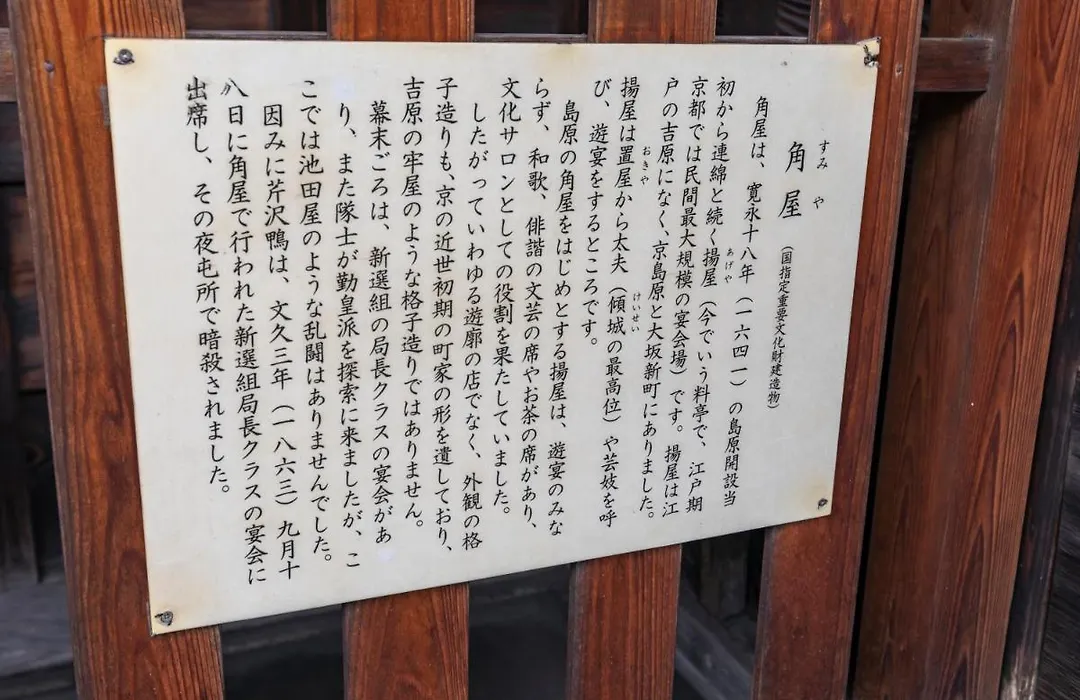 すみや
角屋（国指定重要文化財建造物）
角屋は、寛永十八年（一六四一）の島原開設当
初から連綿と続く揚屋（今でいう料亭で、江戸期
あげや
京都では民間最大規模の宴会場）です。揚屋は江
戸の吉原になく、京島原と大坂新町にありました。
揚屋は置屋から太夫（傾城の最高位）や芸妓を呼
おきや
けいせい
び、遊宴をするところです。
島原の角屋をはじめとする揚屋は、遊宴のみな
らず、和歌、俳諧の文芸の席やお茶の席があり、
文化サロンとしての役割を果たしていました。
したがっていわゆる遊廓の店でなく、外観の格
子造りも、京の近世初期の町家の形を遺しており、
吉原の牢屋のような格子造りではありません。
幕末ごろは、新選組の局長クラスの宴会があ
り、また隊士が勤皇派を探索に来ましたが、こ
こでは池田屋のような乱闘はありませんでした。
因みに芹沢鴨は、文久三年（一八六三）九月十
八日に角屋で行われた新選組局長クラスの宴会に
出席し、その夜屯所で暗殺されました。